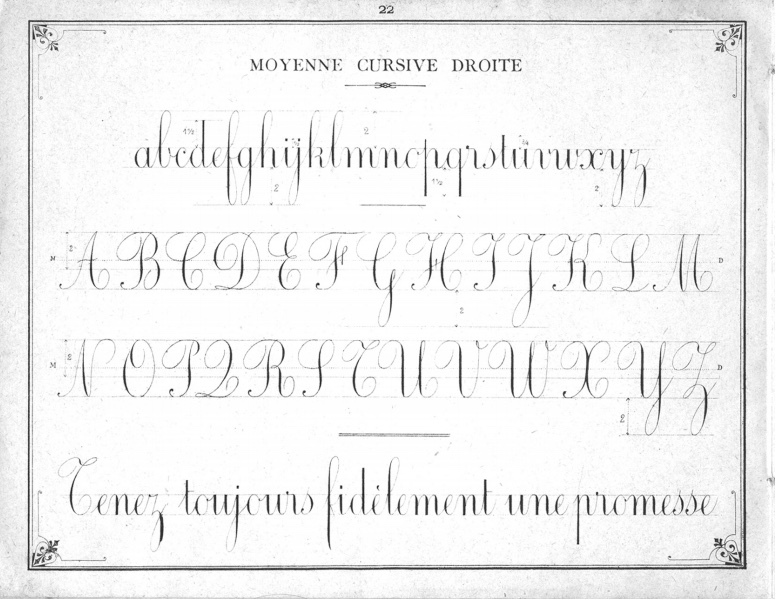 22
MOYENNE CURSIVE DROITE
abcdefghijklmnopqrstuvwxyz
A B C D E F G H I J K L M
N O P Q R S T U V W X Y Z
Tenez toujours fidèlement une promesse